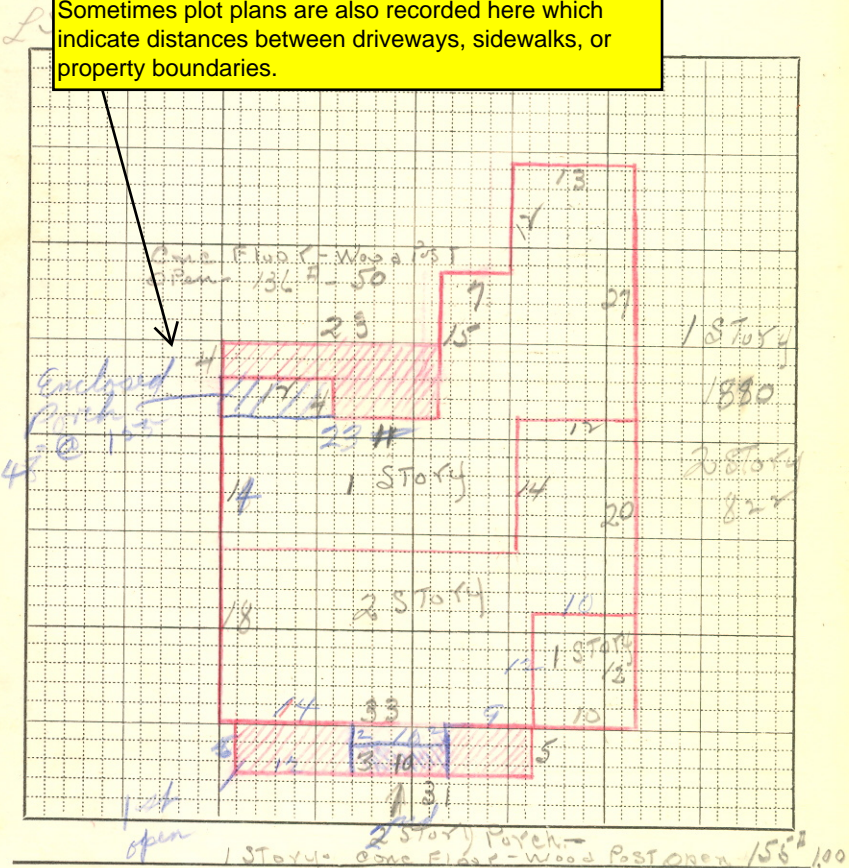 Sometimes plot plans are also recorded here which
indicate distances between driveways, sidewalks, or
property boundaries.
13
12
Conc Floor-Wood Post
Open- 136 - 50
7
27
23
15
1 Story
4
Enclosed
Porch
12
4
1880
@
23
12
48
1 Story
2 Story
14
14
822
20
18
2 Story
10
12
1 Story
12
14
33
9
10
2
10
2
5
3
10
5
12
31
1st
open
2 Story Porch-
1 Story- Conc Floor-Wood Post open 155 1.00